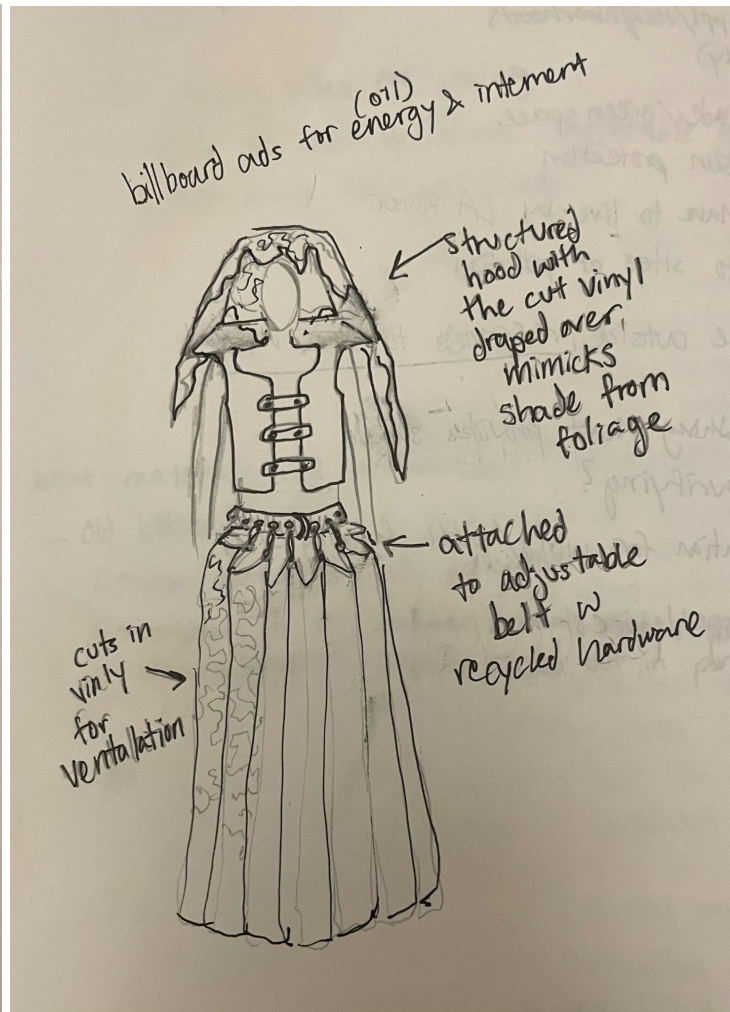 (oil)
billboard ads for energy & interment
structured
hood with
the cut vinyl
draped over,
mimicks
shade from
foliage
attached
to adjustable
belt w
recycled hardware
cuts in
vinly
for
ventallation